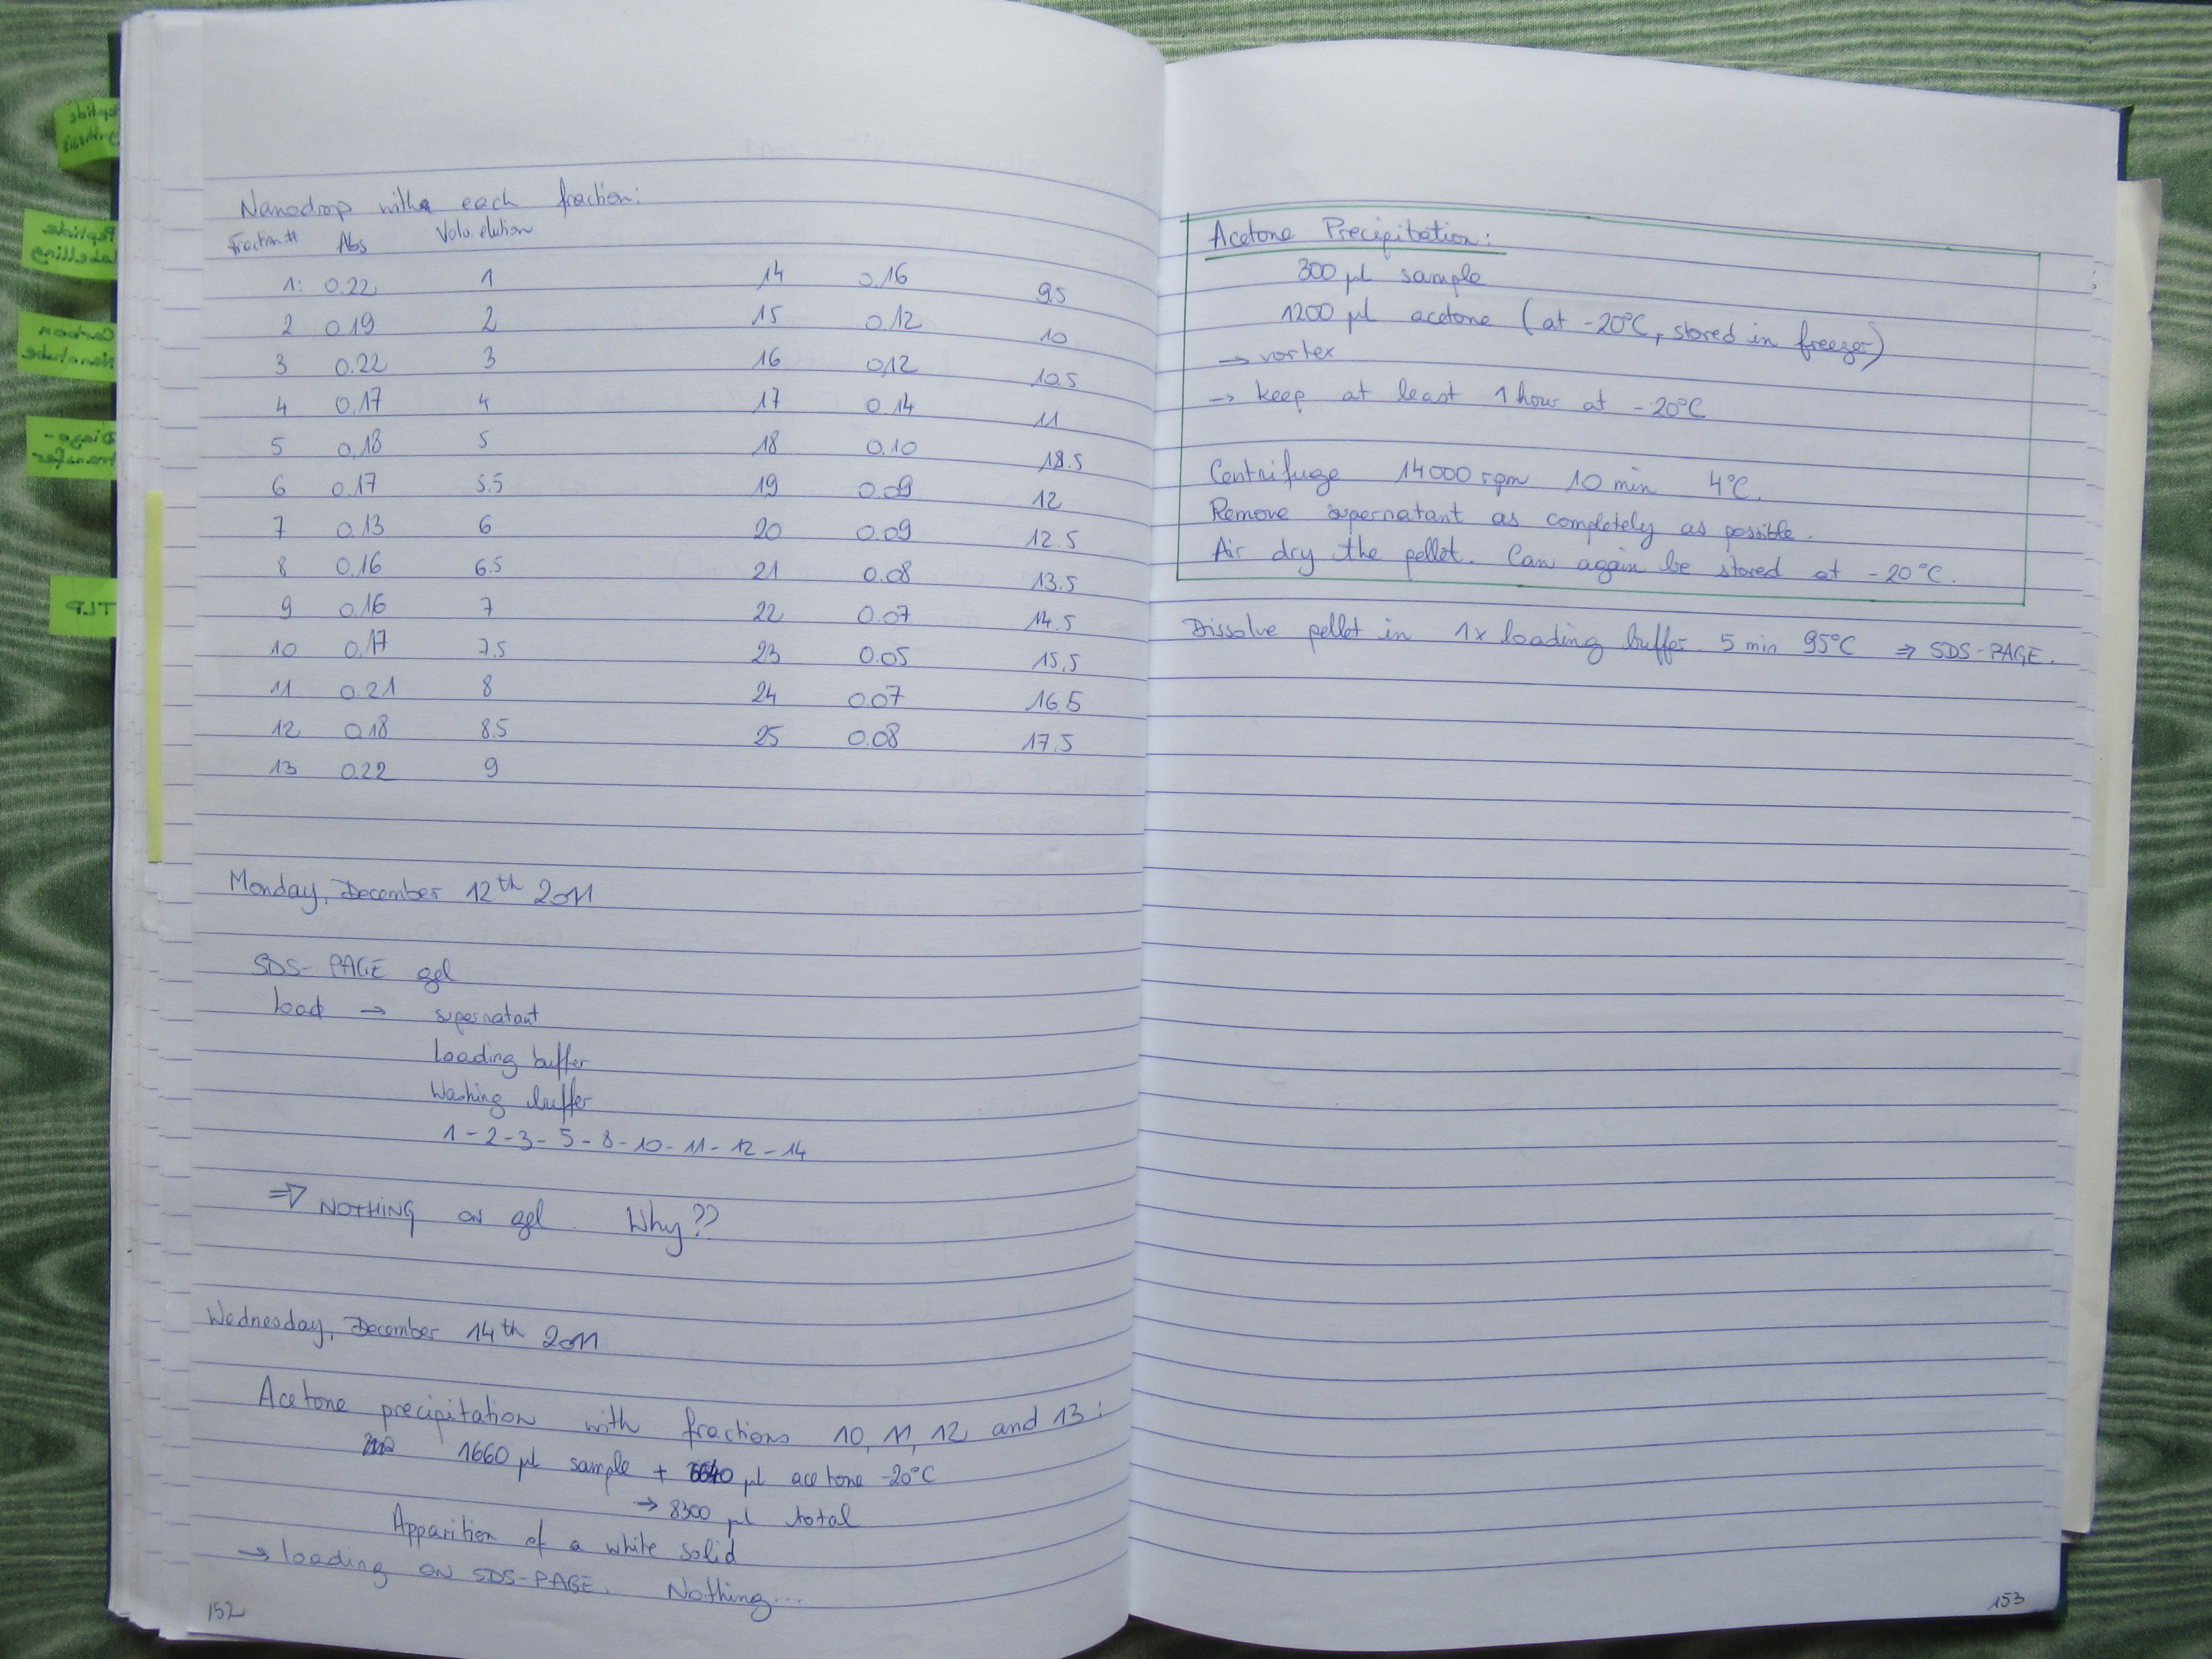 Peptide
synthesis
Peptide
labelling
Carbon
Nanotube
Diazo-
transfer
TLP
Nanodrop with each fraction:
Fraction # Abs Volu. elution
1: 0.22 1
2 0.19 2
3 0.22 3
4 0.17 4
5 0.18 5
6 0.17 5.5
7 0.13 6
8 0.16 6.5
9 0.16 7
10 0.17 7.5
11 0.21 8
12 0.18 8.5
13 0.22 9
14 0.16 9.5
15 0.12 10
16 0.12 10.5
17 0.14 11
18 0.10 18.5
19 0.09 12
20 0.09 12.5
21 0.08 13.5
22 0.07 14.5
23 0.05 15.5
24 0.07 16.5
25 0.08 17.5
Monday, December 12th 2011
SDS-PAGE gel
Load → supernatant
Loading buffer
Washing buffer
1 - 2 - 3 - 5 - 8 - 10 - 11 - 12 - 14
⇒ NOTHING ON gel. Why??
Wednesday, December 14th 2011
Acetone precipitation with fractions 10, 11, 12 and 13:
1660 µl sample + 6640 µl acetone -20°C
→ 8300 µl total
Apparition of a white solid
→ loading ON SDS-PAGE. Nothing...
152
Acetone Precipitation:
300 µl sample
1200 µl acetone (at -20°C, stored in freezer)
→ vortex
→ keep at least 1 hour at -20°C
Centrifuge 14000 rpm 10 min 4°C.
Remove supernatant as completely as possible.
Air dry the pellet. Can again be stored at -20°C.
Dissolve pellet in 1x loading buffer. 5 min 95°C ⇒ SDS-PAGE.
153